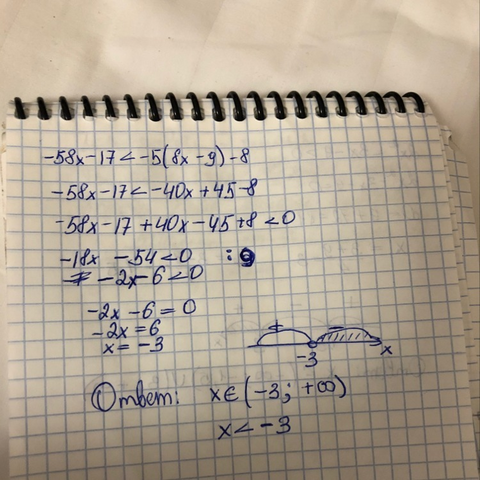 -58x-17<-5(8x-9)-8
-58x-17<-40x+45-8
-58x-17+40x-45+8<0
-18x -54<0 :9
-2x-6<0
-2x-6=0
-2x=6
x=-3
+ -
-3 x
Ответ: x∈(-3; +∞)
x<-3